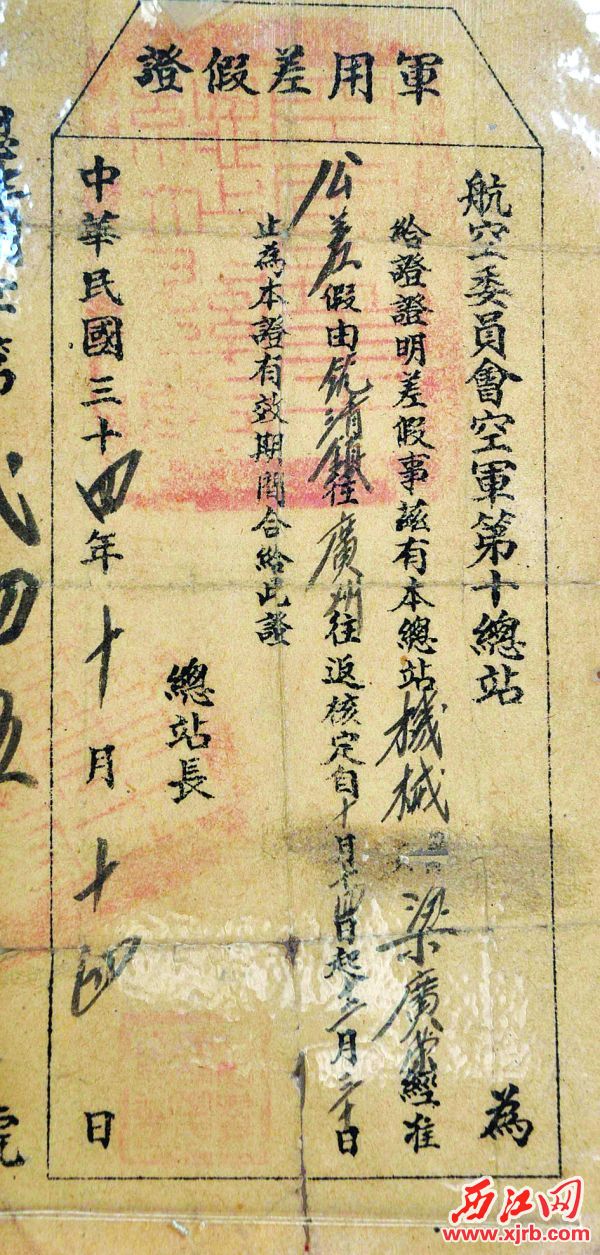 軍用差假證
航空委員會空軍第十總站 為
給證證明差假事茲有本總站機械 梁廣榮經准
公差假由 清鎮往廣州往返核定自十月十四日起至 月 十日
止為本證有效期間合給此證
總站長
中華民國三十四年十月十四日
貳四
號
西江网
www.xjrb.com